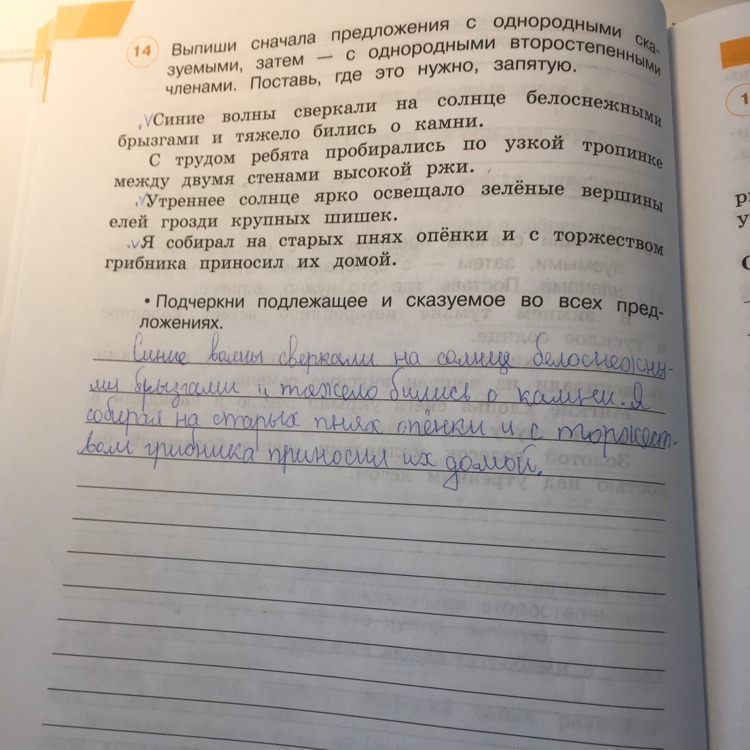 14 Выпиши сначала предложения с однородными ска-
зуемыми, затем — с однородными второстепенными
членами. Поставь, где это нужно, запятую.
Синие волны сверкали на солнце белоснежными
брызгами и тяжело бились о камни.
С трудом ребята пробирались по узкой тропинке
между двумя стенами высокой ржи.
Утреннее солнце ярко освещало зелёные вершины
елей грозди крупных шишек.
Я собирал на старых пнях опёнки и с торжеством
грибника приносил их домой.
• Подчеркни подлежащее и сказуемое во всех пред-
ложениях.
Синие волны сверкали на солнце белоснежны-
ми брызгами и тяжело бились о камни. Я
собирал на старых пнях опёнки и с торжест-
вом грибника приносил их домой.